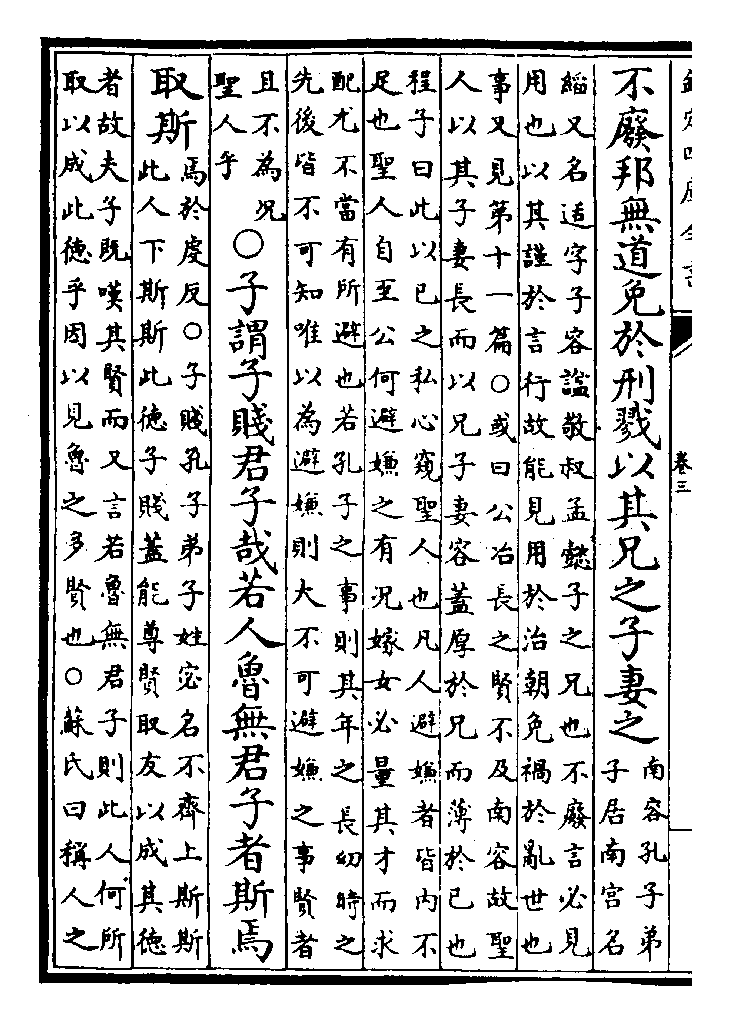 欽定四庫全書
卷三
不廢邦無道免於刑戮以其兄之子妻之
南容孔子弟
子居南宮名
縚又名适字子容諡敬叔孟懿子之兄也不廢言必見
用也以其謹於言行故能見用於治朝免禍於亂世也
事又見第十一篇○或曰公冶長之賢不及南容故聖
人以其子妻長而以兄子妻容蓋厚於兄而薄於已也
程子曰此以已之私心窺聖人也凡人避嫌者皆内不
足也聖人自至公何避嫌之有况嫁女必量其才而求
配尤不當有所避也若孔子之事則其年之長幼時之
先後皆不可知唯以為避嫌則大不可避嫌之事賢者
且不為况
聖人乎
○子謂子賤君子哉若人魯無君子者斯焉
取斯
焉於虔反○子賤孔子弟子姓宓名不齊上斯斯
此人下斯斯此德子賤蓋能尊賢取友以成其德
者故夫子既嘆其賢而又言若魯無君子則此人何所
取以成此德乎因以見魯之多賢也○蘇氏曰稱人之